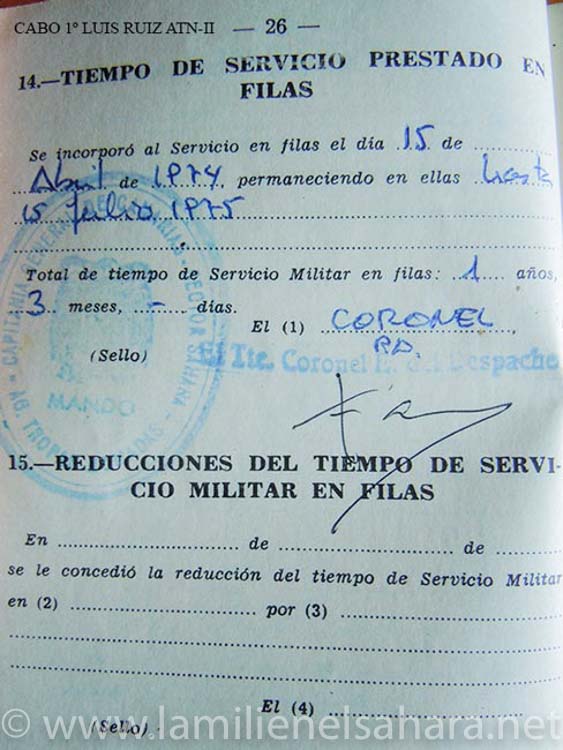 CABO 1º LUIS RUIZ ATN-II — 26 —
14.—TIEMPO DE SERVICIO PRESTADO EN
FILAS
Se incorporó al Servicio en filas el día 15 de
Abril de 1974, permaneciendo en ellas hasta
15 Julio 1975
Total de tiempo de Servicio Militar en filas: 1 años,
3 meses, - días.
El (1) CORONEL
P.D.
(Sello)
El Tte. Coronel E. del Despacho
CAPITANIA GENERAL DE CANARIAS - SECTOR SAHARA -
AG. TROPAS
MANDO
15.—REDUCCIONES DEL TIEMPO DE SERVI-
CIO MILITAR EN FILAS
En de de
se le concedió la reducción del tiempo de Servicio Militar
en (2) por (3)
El (4)
(Sello)
© www.lamilienelsahara.net